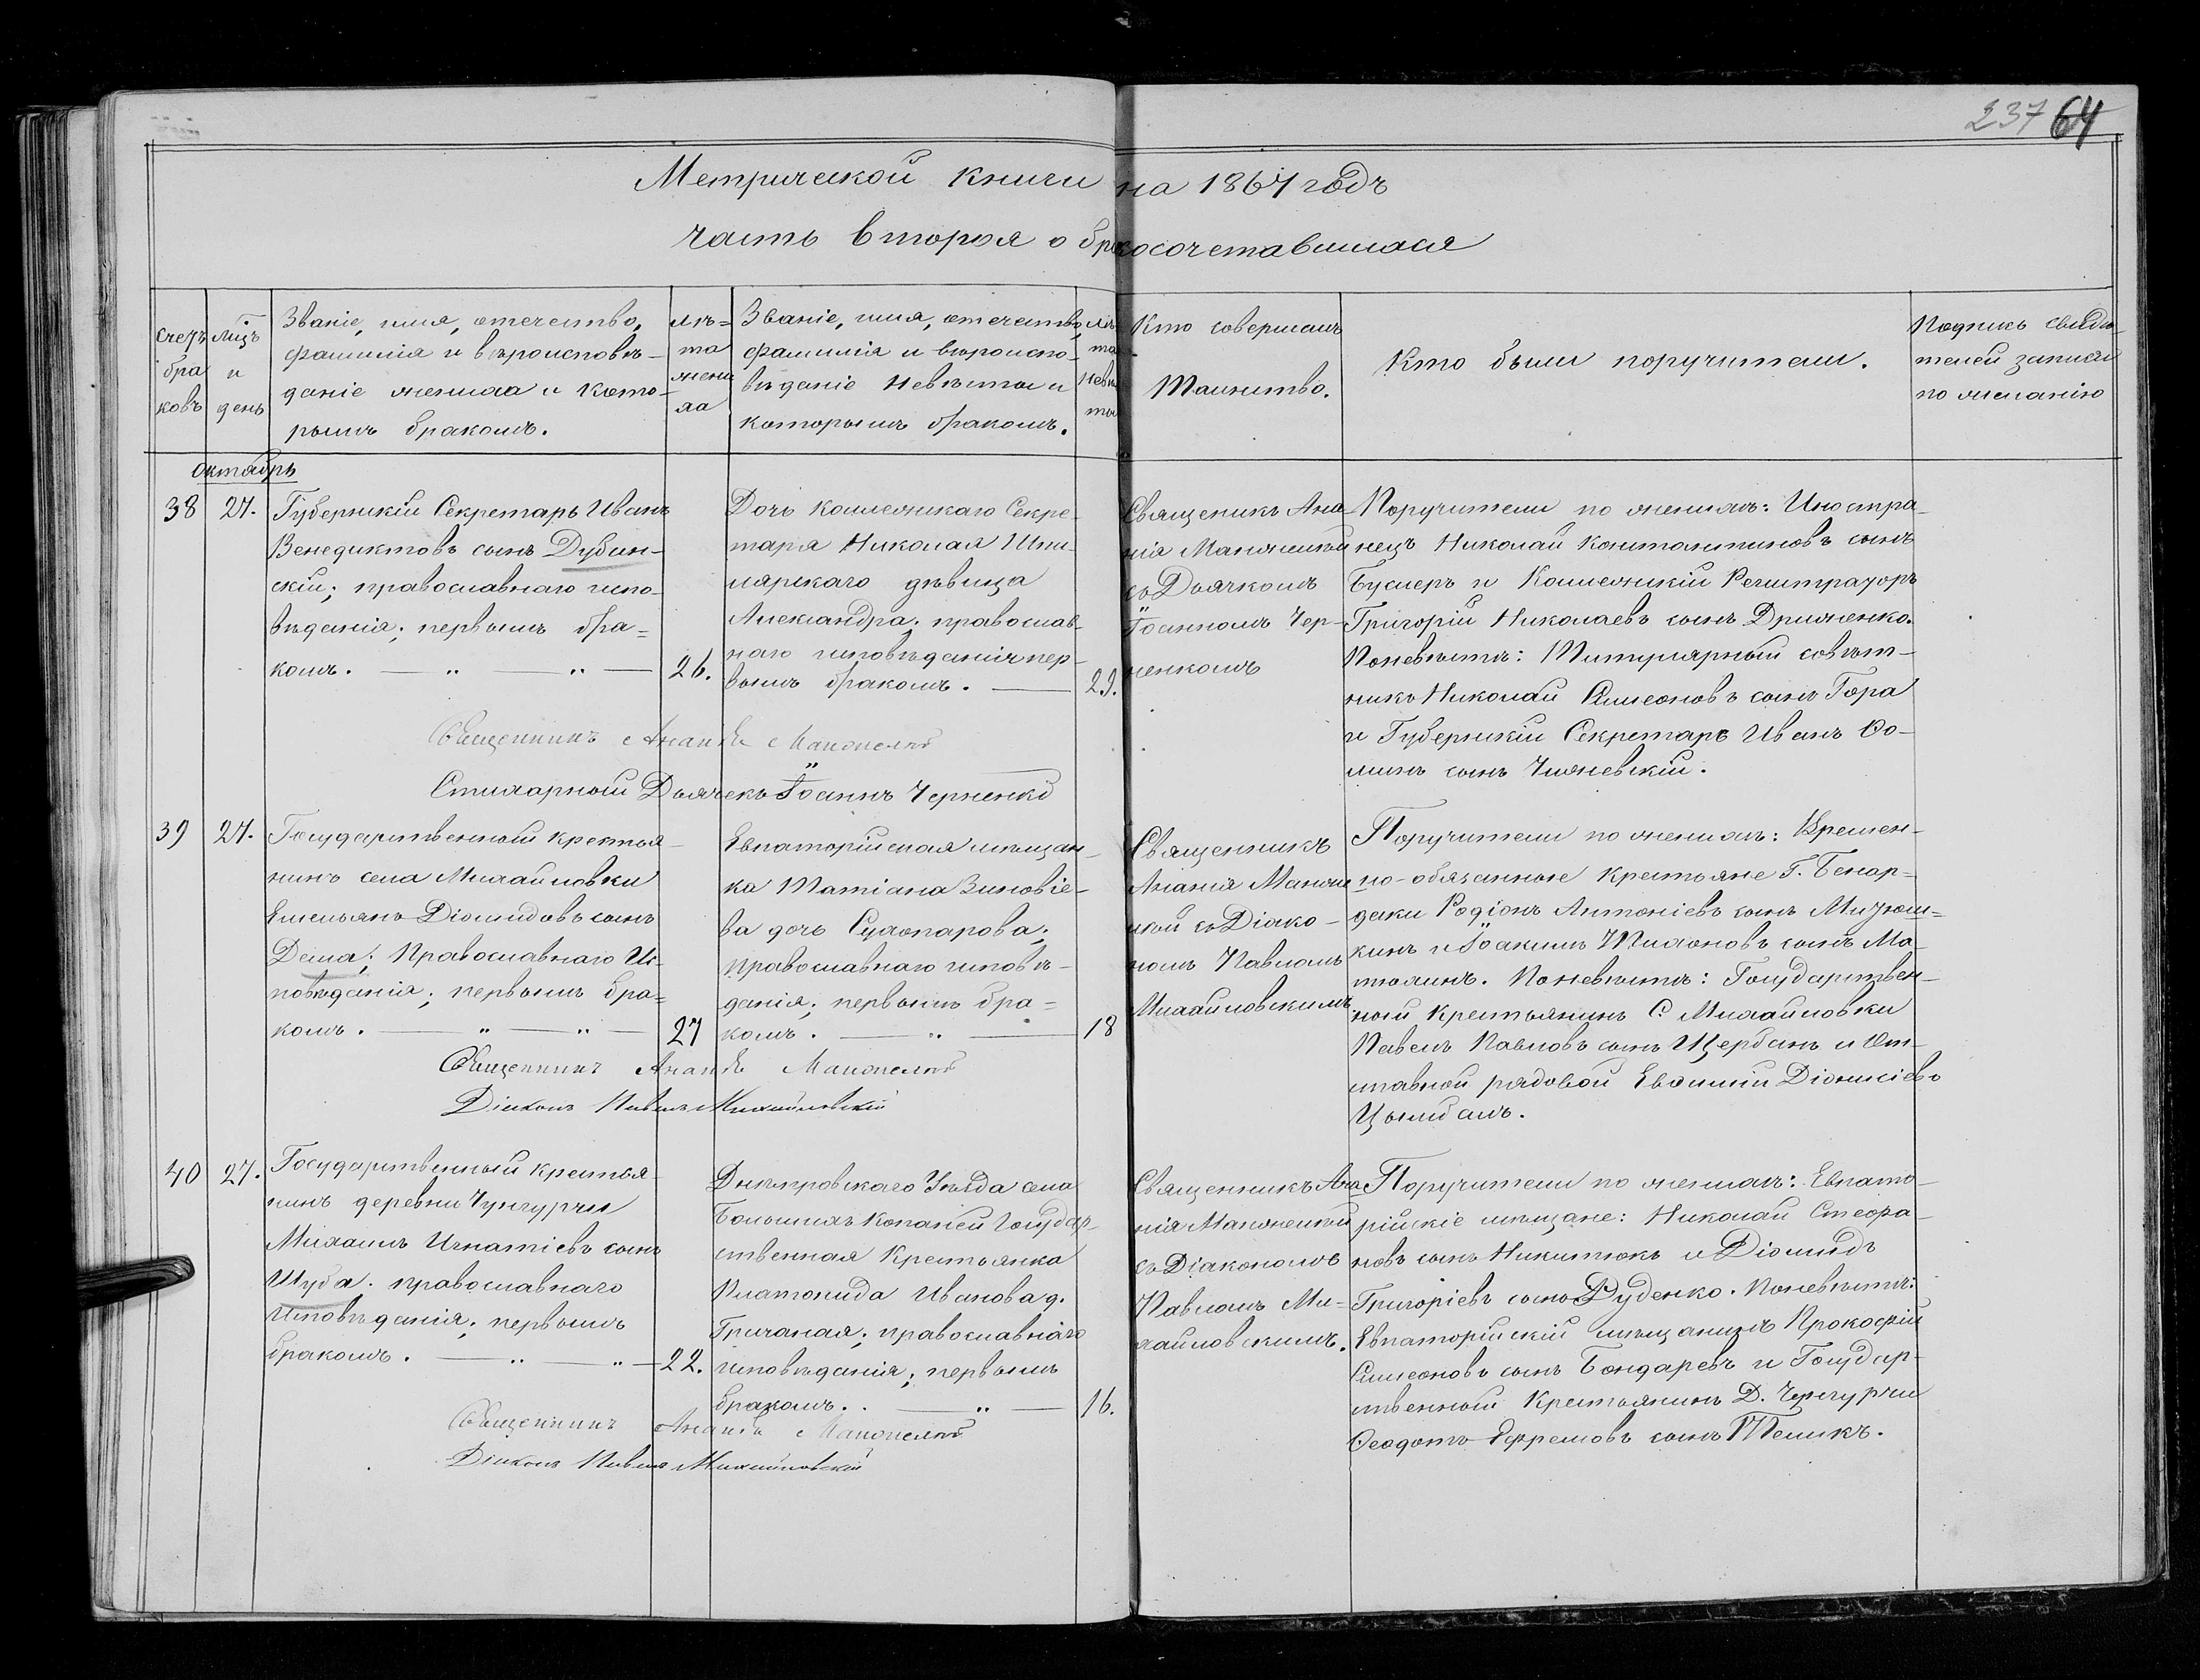 237 64
Метрической книги на 1867 годъ
часть вторая о бракосочетавшихся
Счетъ браковъ
Мѣцъ и день
Званіе, имя, отечество,
фамилія и вѣроисповѣ-
даніе жениха и кото-
рымъ бракомъ.
лѣ=
та
жени
ха
Званіе, имя, отечество,
фамилія и вѣроиспо-
вѣданіе невѣсты и
которымъ бракомъ.
лѣ
та
невѣ
сты
Кто совершалъ
Таинство.
Кто были поручители.
Подпись свидѣ-
телей записи
по желанію
Октябрь
38
27.
Губернскій Секретарь Иванъ
Венедиктовъ сынъ Дубин-
скій; православнаго испо-
вѣданія; первымъ бра=
комъ.
26.
Дочь Коллежскаго Секре-
таря Николая Шти-
лярскаго дѣвица
Александра; православ-
наго исповѣданія пер-
вымъ бракомъ.
29.
Священикъ Ана-
нія Маножелый
съ Дьячкомъ
Іоанномъ Чер-
ненкомъ
Поручители по женихѣ: Иностра-
нецъ Николай Константиновъ сынъ
Буслеръ и Коллежскій Регистраторъ
Григорій Николаевъ сынъ Дриженко.
По невѣстѣ: Титулярный совѣт-
никъ Николай Симеоновъ сынъ Гора
и Губернскій Секретарь Иванъ Ѳо-
минъ сынъ Чижевскій.
Священникъ Ананія
Стихарный Дьячекъ Іоаннъ Черненко
39
27.
Государственный крестья-
нинъ села Михайловки
Емельянъ Діомидовъ сынъ
Деха; Православнаго Ис-
повѣданія; первымъ бра=
комъ.
27
Евпаторійская мѣщан-
ка Татіана Зиновіе-
ва дочь Сухопарова;
православнаго исповѣ-
данія; первымъ бра=
комъ.
18
Священникъ
Ананія Маноже
лый съ Діако-
номъ Павломъ
Михайловскимъ
Поручители по женихѣ: Времен-
но-обязанные крестьяне Г. Бенар-
даки Родіонъ Антоніевъ сынъ Митюш=
кинъ и Іоакимъ Тихоновъ сынъ Ма-
тюхинъ. По невѣстѣ: Государствен-
ный крестьянинъ С. Михайловки
Павелъ Павловъ сынъ Щербанъ и От-
ставной рядовой Евѳимій Діонисіевъ
Цымбалъ.
Священникъ Ананія
Діаконъ Павелъ Михайловскій
40
27.
Государственный крестья-
нинъ деревни Чунгурчи
Михаилъ Игнатіевъ сынъ
Шуба; православнаго
исповѣданія; первымъ
бракомъ.
22.
Днѣпровскаго Уѣзда села
Большихъ Копаней Государ-
ственная Крестьянка
Платонида Иванова д.
Гричаная; православнаго
исповѣданія; первымъ
бракомъ.
16.
Священникъ Ана-
нія Маножелый
съ Діакономъ
Павломъ Ми=
хайловскимъ.
Поручители по женихѣ: Евпато-
рійскіе мѣщане: Николай Стефа-
новъ сынъ Никитюкъ и Діомидъ
Григоріевъ сынъ Руденко. По невѣстѣ:
Евпаторійскій мѣщанинъ Прокофій
Симеоновъ сынъ Бондаревъ и Государ-
ственный Крестьянинъ Д. Чунгурчи
Ѳеодотъ Ефремовъ сынъ Теликъ.
Священникъ Ананія
Діаконъ Павелъ Михайловскій